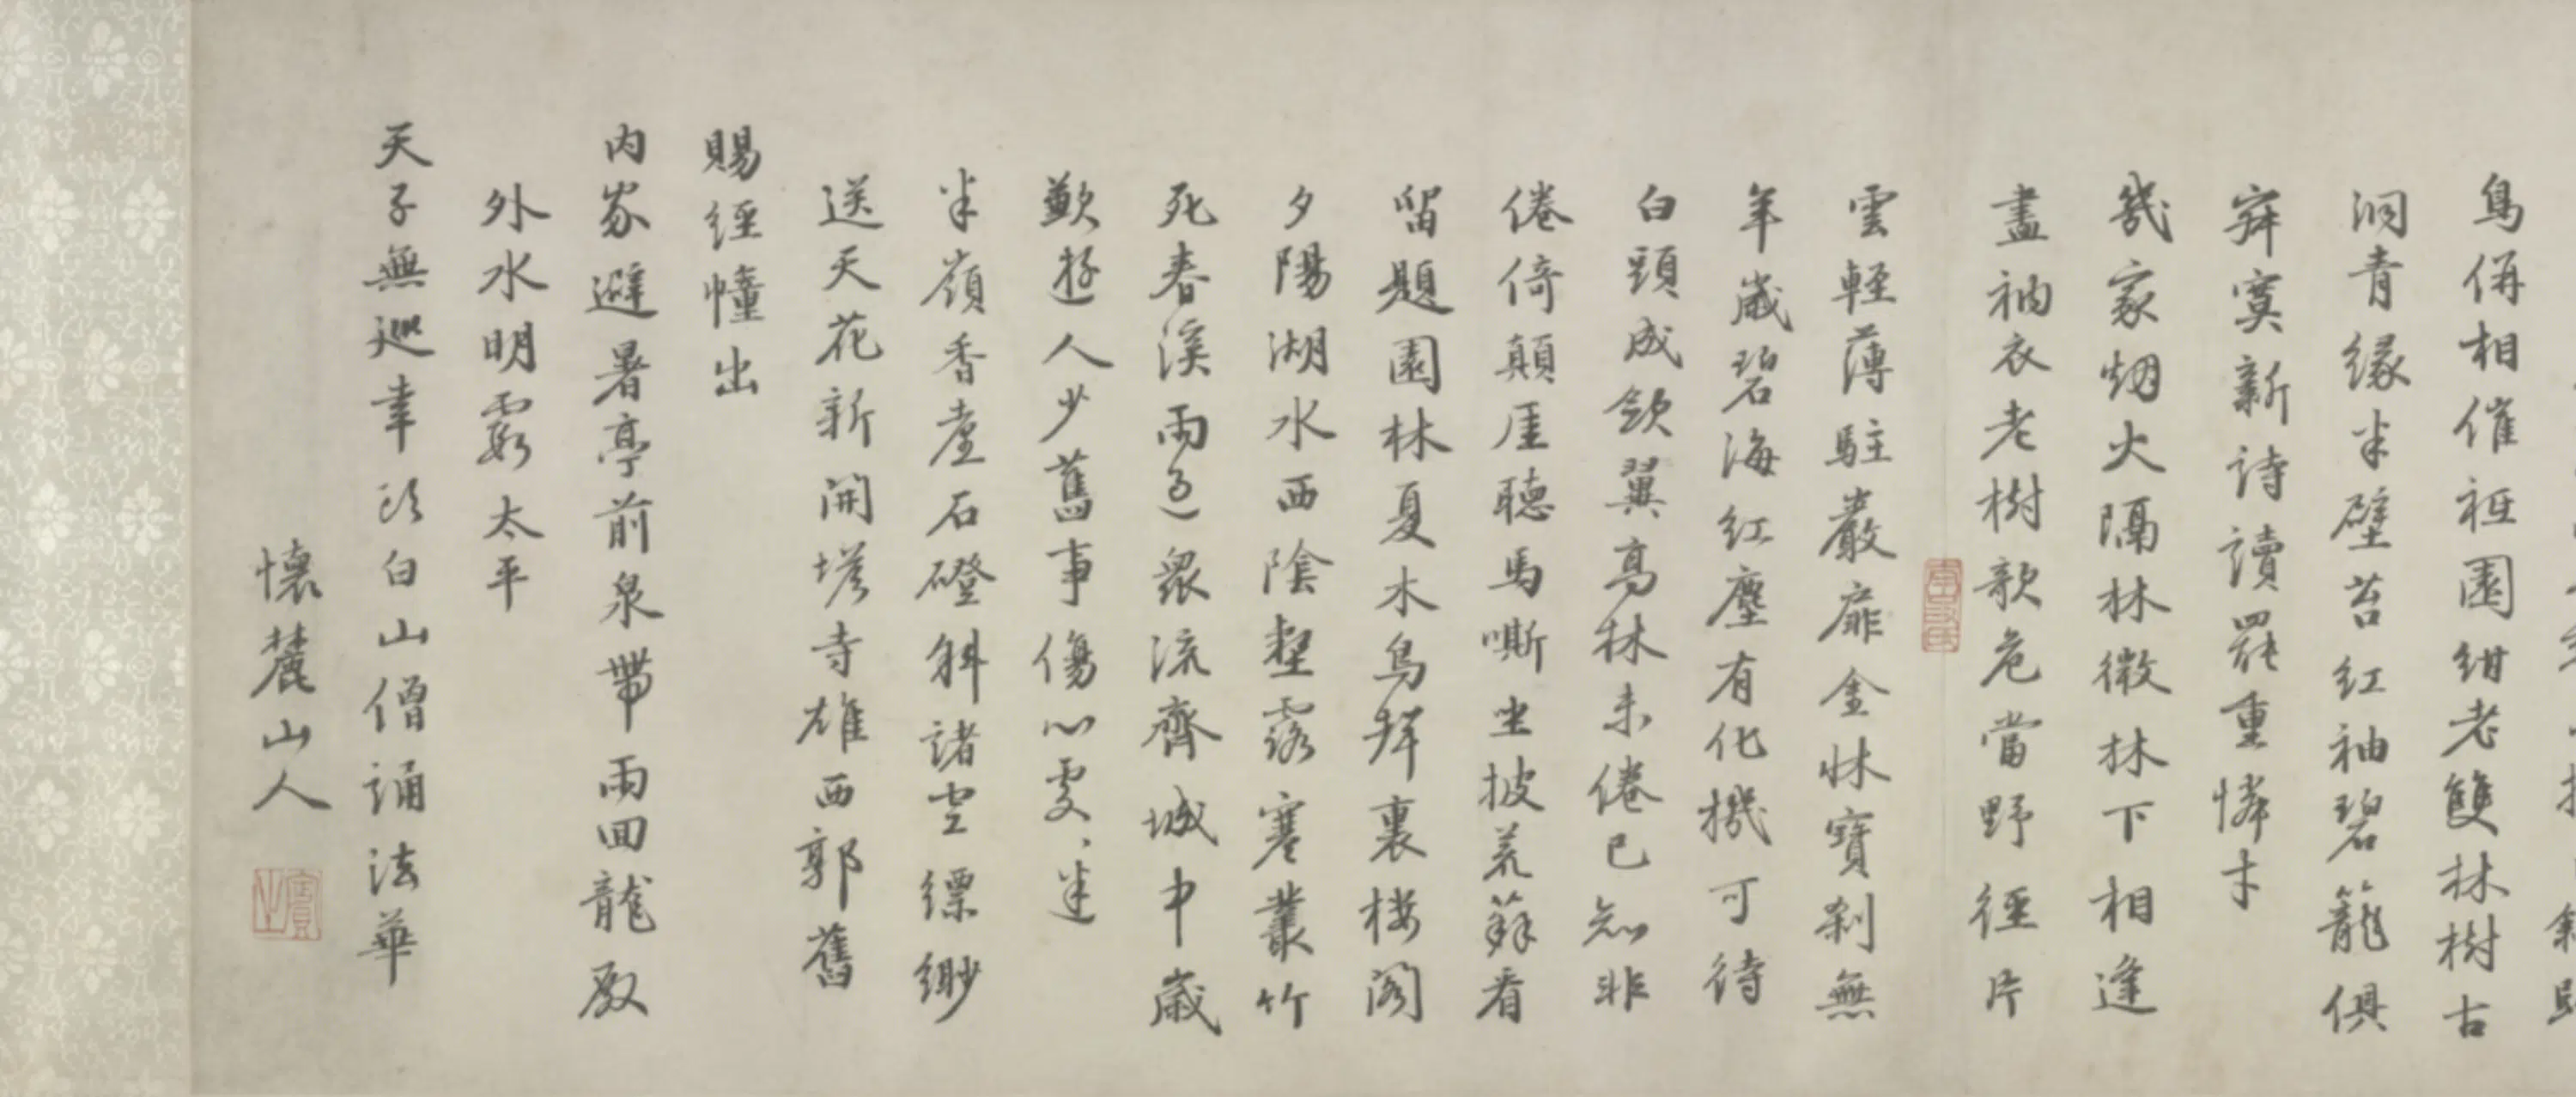 鳥倂相催祗園紺老雙林樹古
洞青緣半壁苔紅袖碧籠俱
寂寞新詩讀罷重憐才
幾家烟火隔林微林下相逢
盡衲衣老樹欹危當野徑片
雲輕薄駐巖扉金牀寶刹無
年歲碧海紅塵有化機可待
白頭成斂翼高林未倦已知非
倦倚顛厓聽馬嘶坐披荒蘚看
留題園林夏木鳥聲裏樓閣
夕陽湖水西陰壑露寒叢竹
死春溪雨過衆流齊城中歲
歎遊人少舊事傷心處〻迷
半嶺香臺石磴斜諸空縹緲
送天花新開塔寺雄西郭舊
賜經幢出
內家避暑亭前泉帶雨回龍殿
外水明霞太平
天子無巡幸頭白山僧誦法華
懷麓山人
賓之